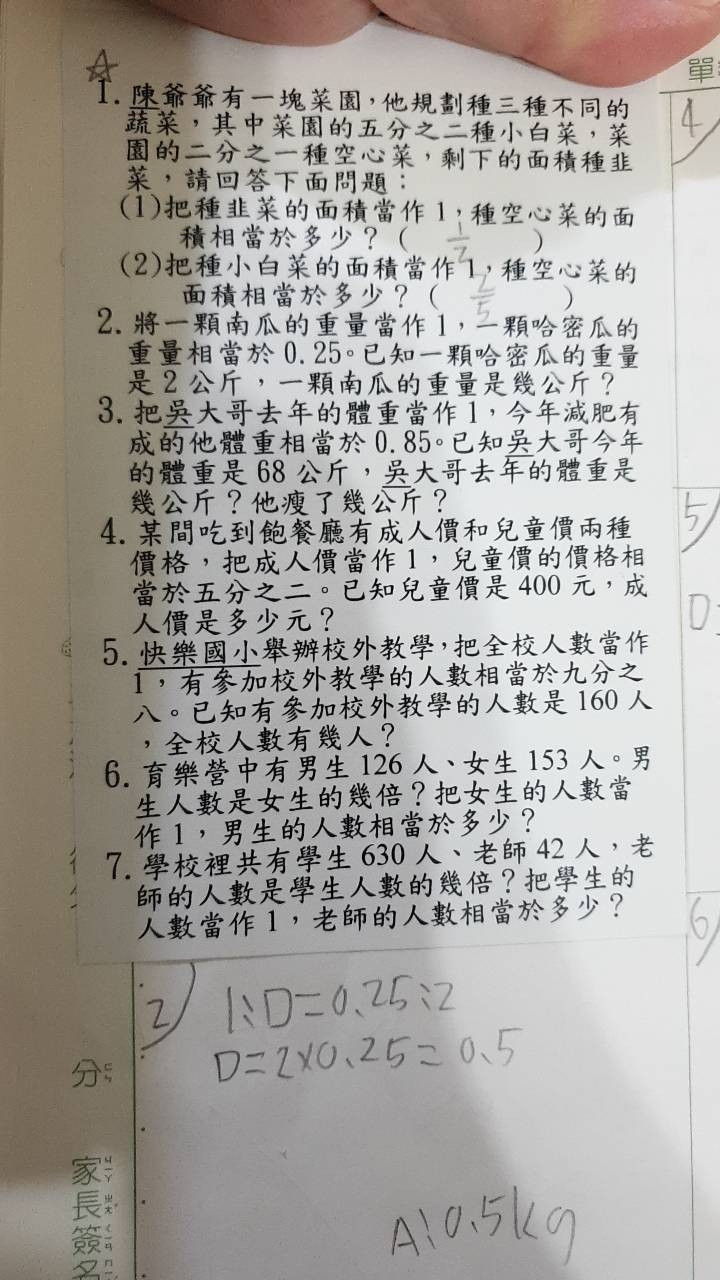 A☆
1. 陳爺爺有一塊菜園，他規劃種三種不同的
蔬菜，其中菜園的五分之二種小白菜，菜
園的二分之一種空心菜，剩下的面積種韭
菜，請回答下面問題：
(1)把種韭菜的面積當作1，種空心菜的面
積相當於多少？( 1/2 )
(2)把種小白菜的面積當作1，種空心菜的
面積相當於多少？( 2/5 )
2. 將一顆南瓜的重量當作1，一顆哈密瓜的
重量相當於0.25。已知一顆哈密瓜的重量
是2公斤，一顆南瓜的重量是幾公斤？
3. 把吳大哥去年的體重當作1，今年減肥有
成的他體重相當於0.85。已知吳大哥今年
的體重是68公斤，吳大哥去年的體重是
幾公斤？他瘦了幾公斤？
4. 某間吃到飽餐廳有成人價和兒童價兩種
價格，把成人價當作1，兒童價的價格相
當於五分之二。已知兒童價是400元，成
人價是多少元？
5. 快樂國小舉辦校外教學，把全校人數當作
1，有參加校外教學的人數相當於九分之
八。已知有參加校外教學的人數是160人
，全校人數有幾人？
6. 育樂營中有男生126人、女生153人。男
生人數是女生的幾倍？把女生的人數當
作1，男生的人數相當於多少？
7. 學校裡共有學生630人、老師42人，老
師的人數是學生人數的幾倍？把學生的
人數當作1，老師的人數相當於多少？
2) 1:D=0.25:2
D=2×0.25=0.5
A:0.5kg
分ㄈㄣ
家ㄐㄧㄚ長ㄓㄤˇ簽ㄑㄧㄢ名
單
4)
5)
D:
6)